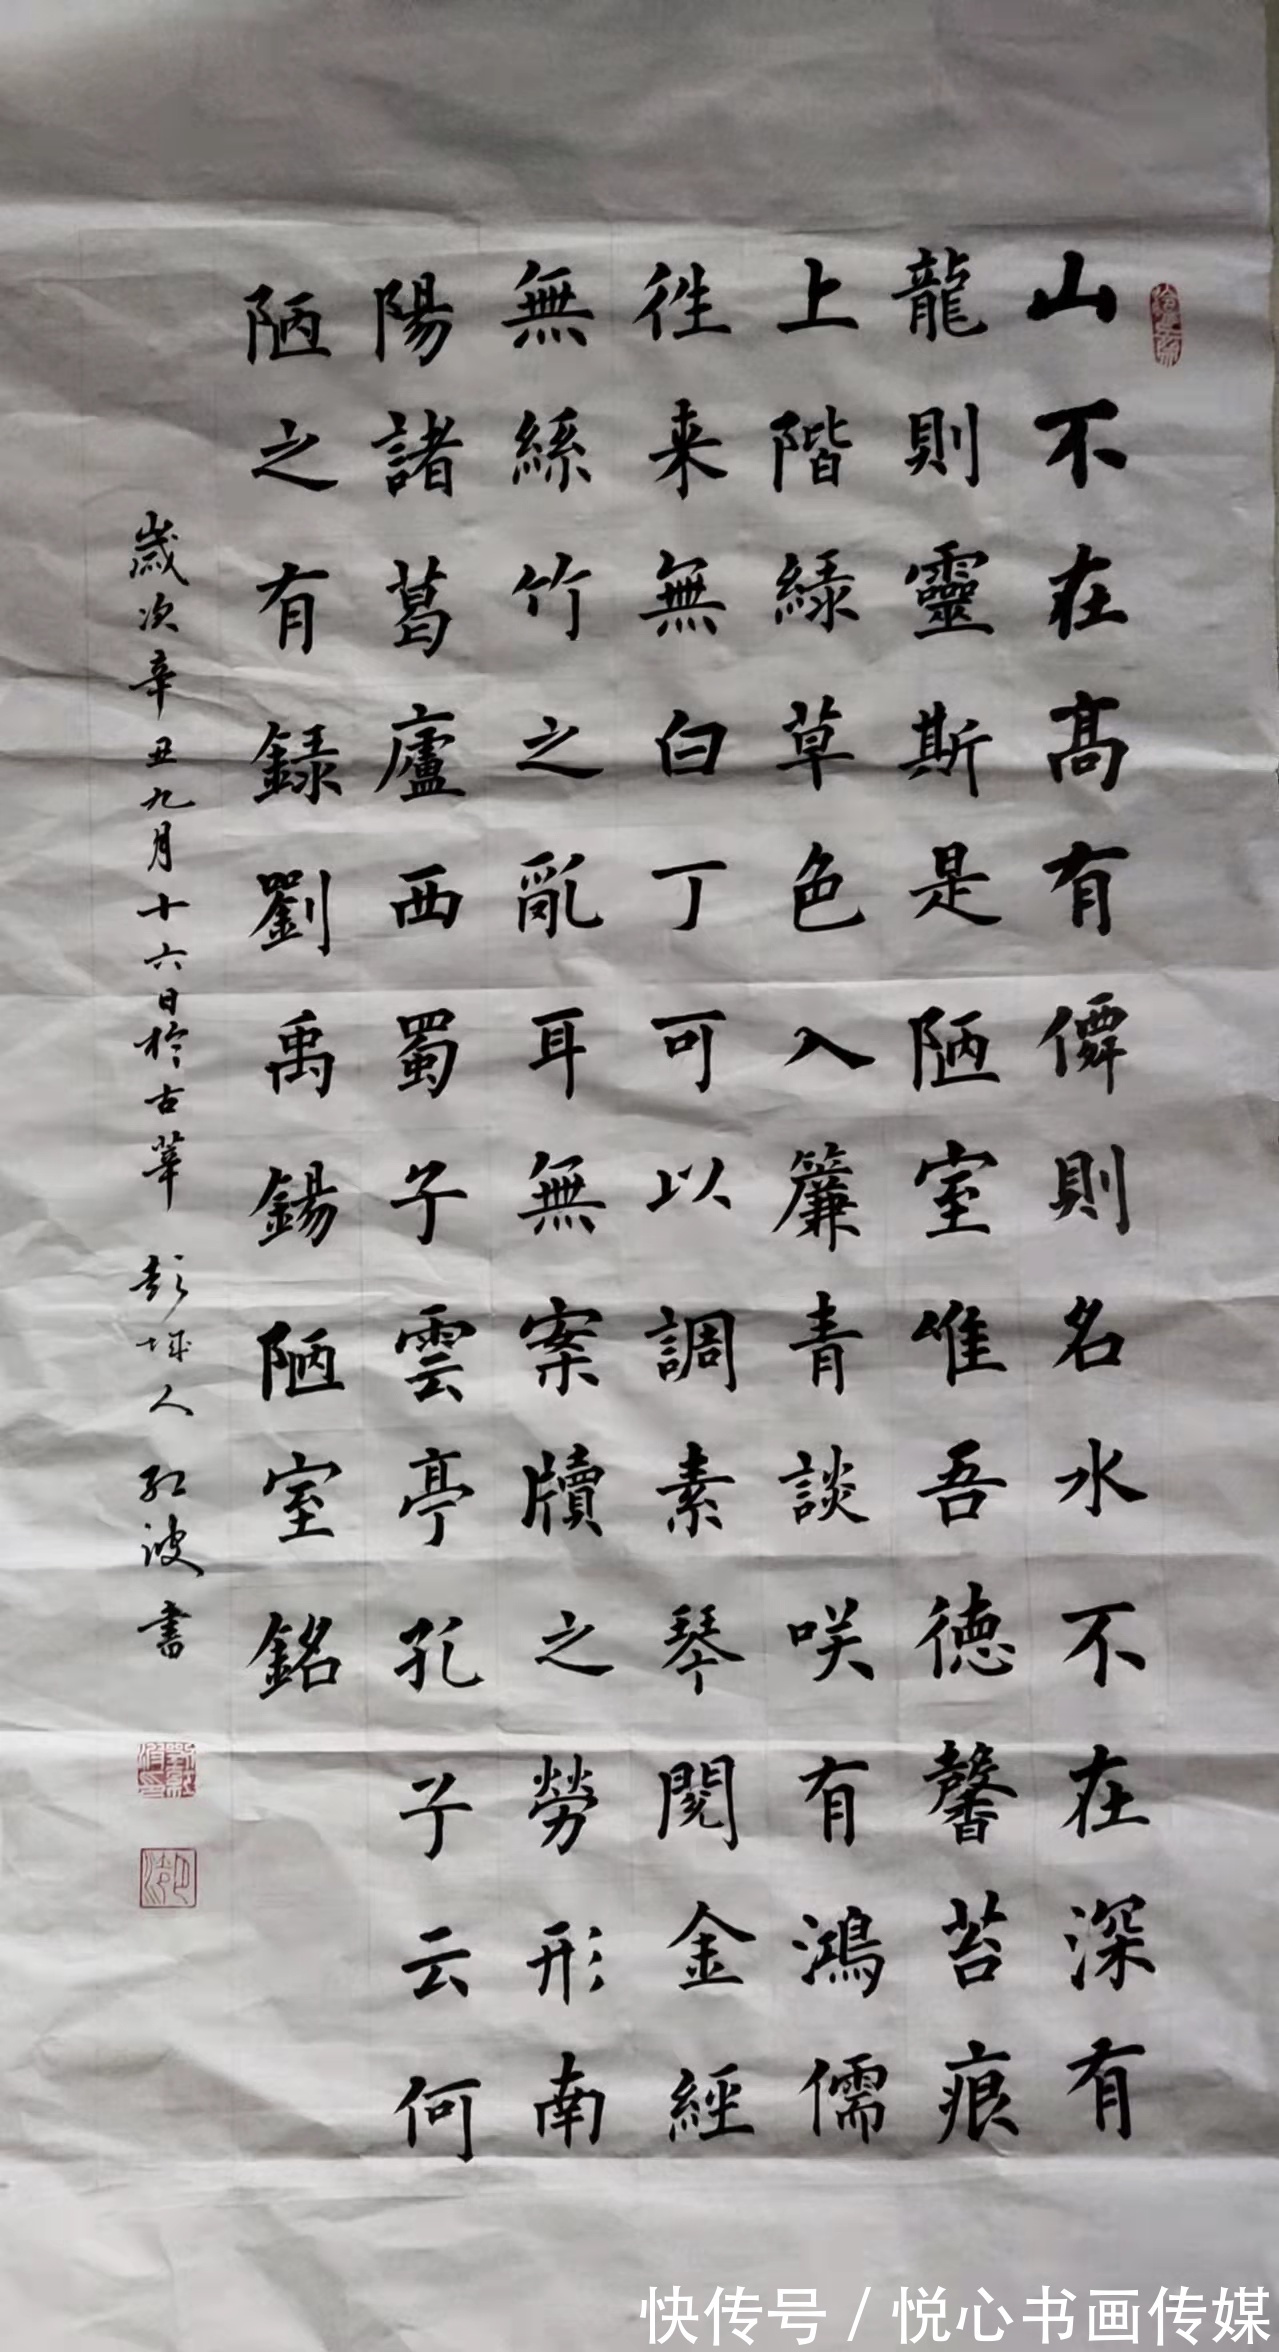 山不在高有僊則名水不在深有
龍則靈斯是陋室惟吾德馨苔痕
上階緑草色入簾青談咲有鴻儒
徃来無白丁可以調素琴閱金經
無絲竹之亂耳無案牘之勞形南
陽諸葛廬西蜀子雲亭孔子云何
陋之有録劉禹錫陋室銘
歲次辛丑九月十六日於古莘 彭城人 紅波書
快传号 / 悦心书画传媒